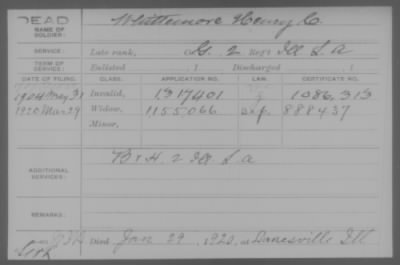 DEAD
NAME OF SOLDIER: Whittemore Henry C.
SERVICE: Late rank, Co. G. 2 Reg't Ill L A
TERM OF SERVICE: Enlisted , 1 Discharged , 1
DATE OF FILING. CLASS. APPLICATION NO. LAW. CERTIFICATE NO.
1904 May 31 Invalid, 1317401 1086,313
1920 Mar 29 Widow, 1155,066 888437
Minor,
ADDITIONAL SERVICES: Ill L A
REMARKS:
Died Jan 29, 1920, at Danesville Ill